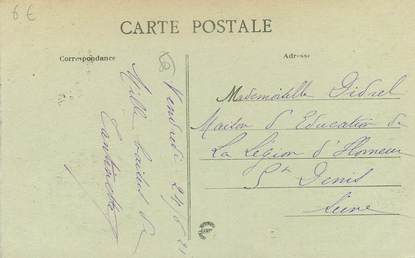 6€
CARTE POSTALE
Correspondance
Adresse
Vendredi 24/6/21
Mille baisers de
Mademoiselle Didrel
Maison d'Education de
La Légion d'Honneur
St Denis
Seine